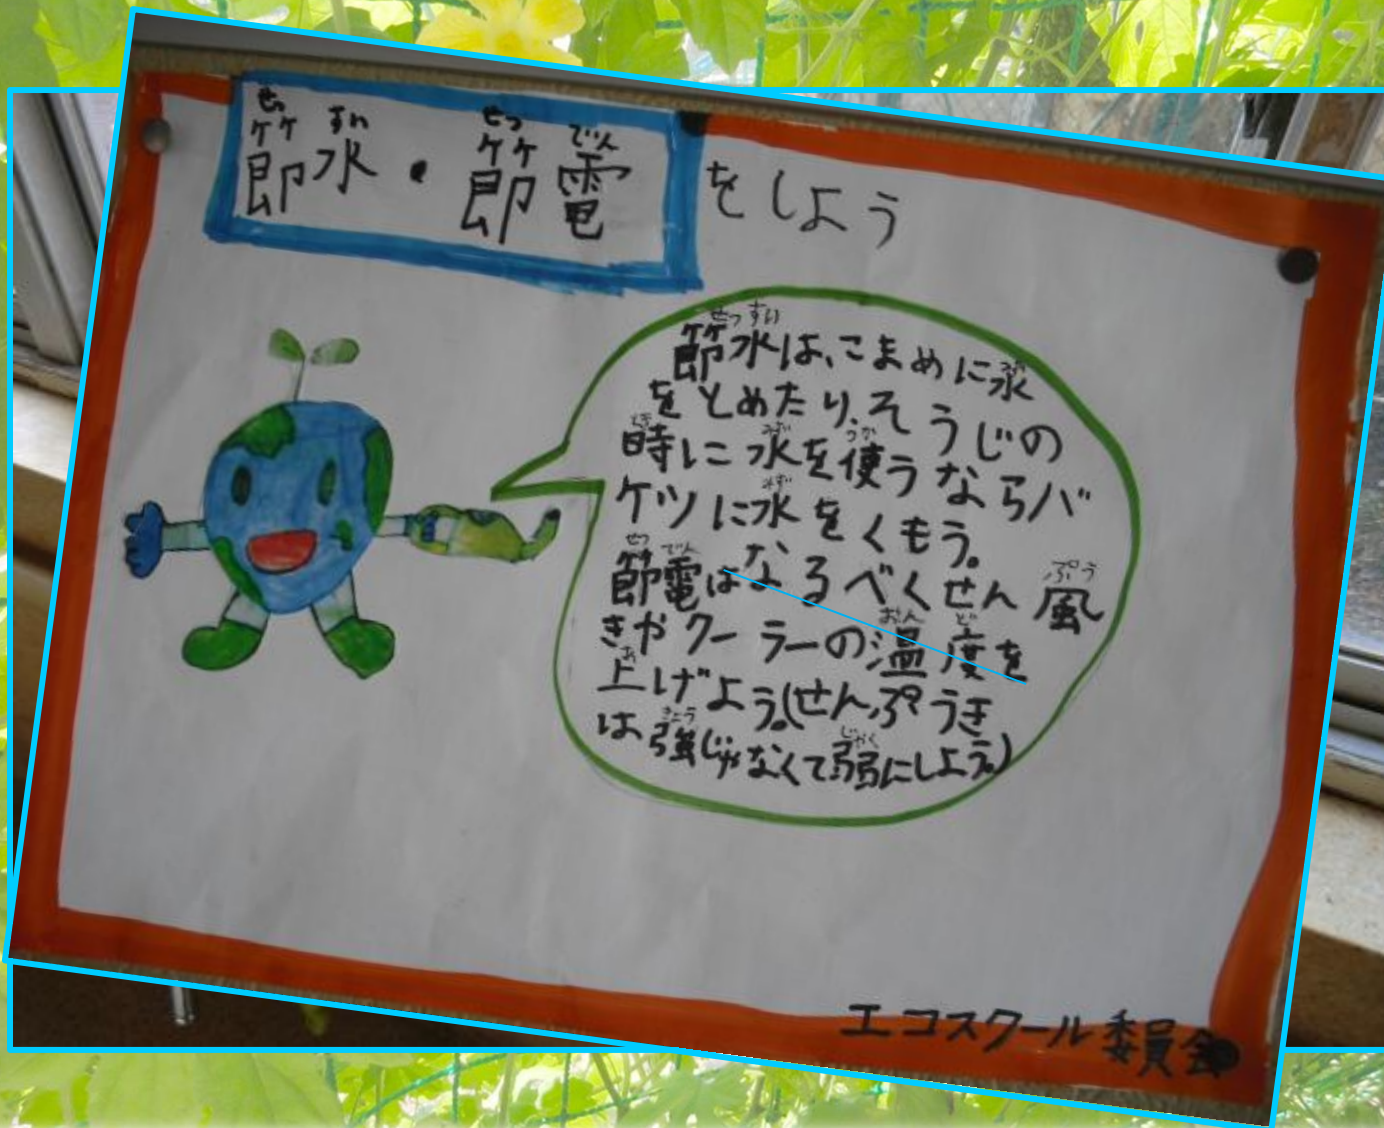 節水・節電をしよう
せっ すい せつ でん
せっすい
節水は、こまめに水
をとめたり、そうじの
時に水を使うならバ
ケツに水をくもう。
節電はなるべくせん風
きやクーラーの温度を
上げよう。(せんぷうき
は強じゃなくて弱にしよう。)
エコスクール委員会